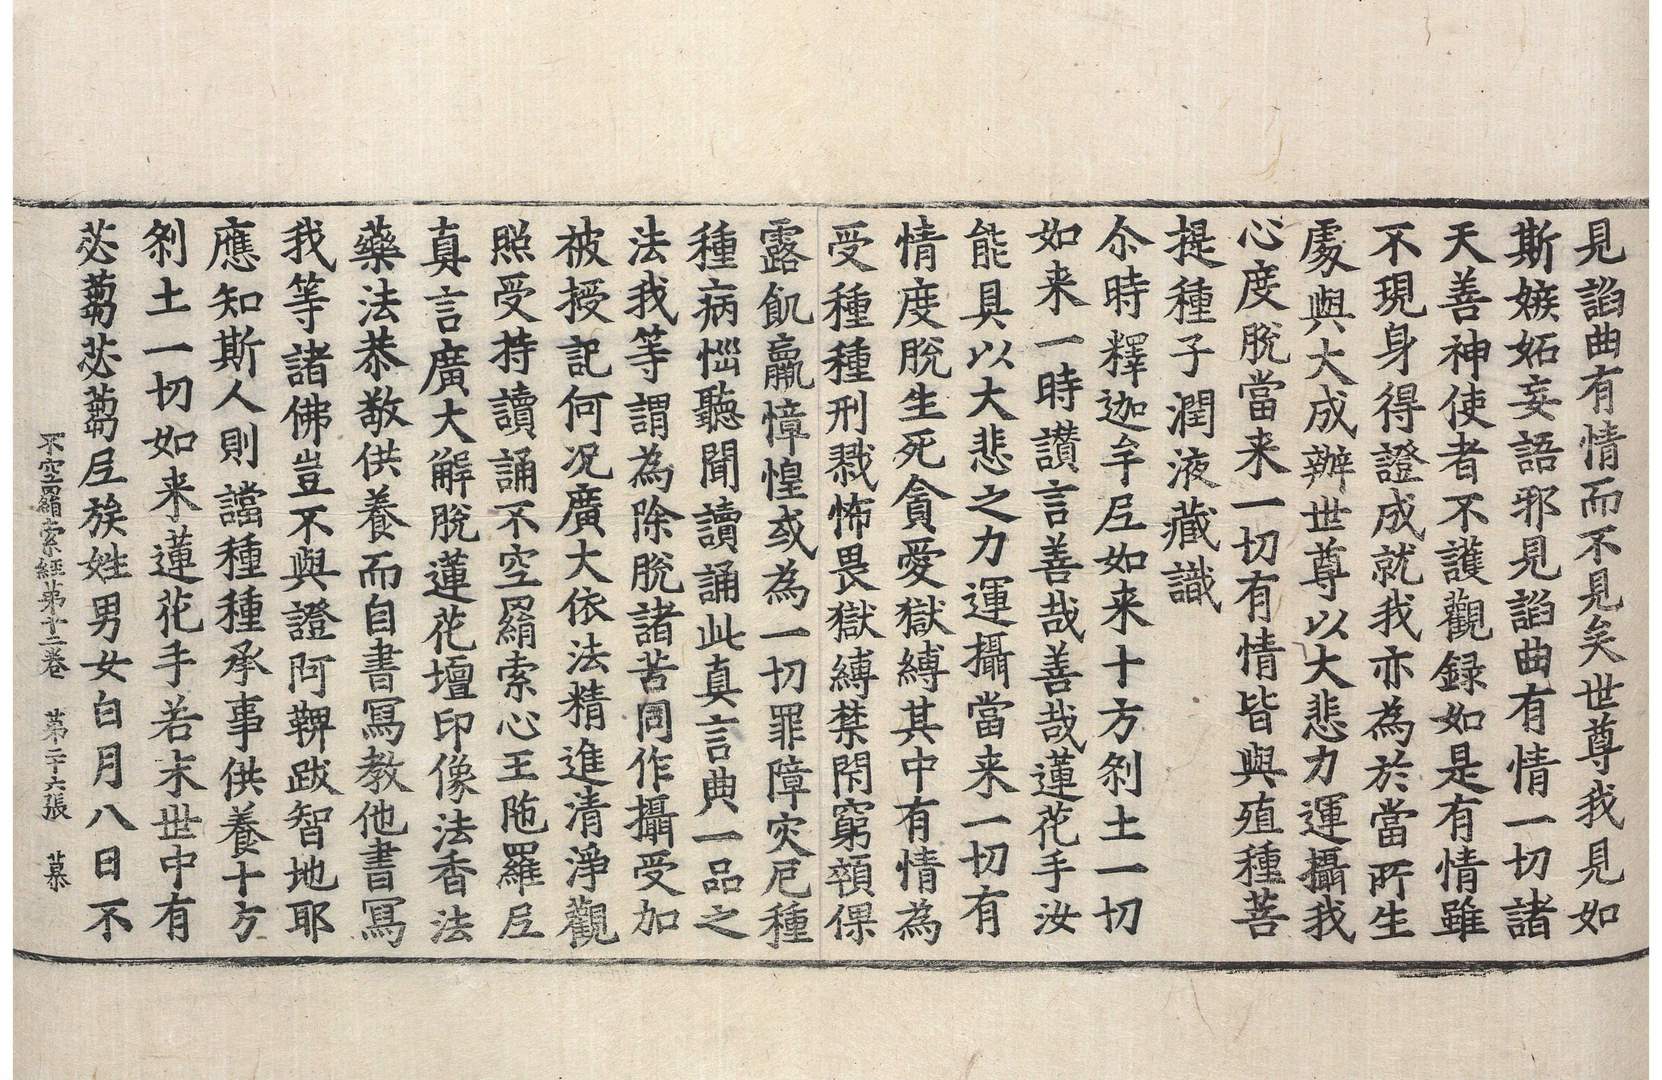 見諂曲有情而不見矣世尊我見如
斯嫉妬妄語邪見諂曲有情一切諸
天善神使者不護觀録如是有情雖
不現身得證成就我亦為於當所生
處與大成辦世尊以大悲力運攝我
心度脫當来一切有情皆與殖種菩
提種子潤液藏識
尒時釋迦牟𡰱如来十方剎土一切
如来一時讃言善哉善哉蓮花手汝
能具以大悲之力運攝當来一切有
情度脫生死貪愛獄縛其中有情為
受種種刑戮怖畏獄縛禁閇窮顇倮
露飢羸慞惶或為一切罪障灾厄種
種病惱聽聞讀誦此真言典一品之
法我等謂為除脫諸苦同作攝受加
被授記何况廣大依法精進清淨觀
照受持讀誦不空羂索心王陁羅𡰱
真言廣大解脫蓮花壇印像法香法
藥法恭敬供養而自書冩教他書冩
我等諸佛豈不與證阿鞞跋智地耶
應知斯人則讜種種承事供養十方
剎土一切如来蓮花手若末世中有
苾蒭苾蒭𡰱族姓男女白月八日不
不空羂索經第十二卷 第二十六張 慕